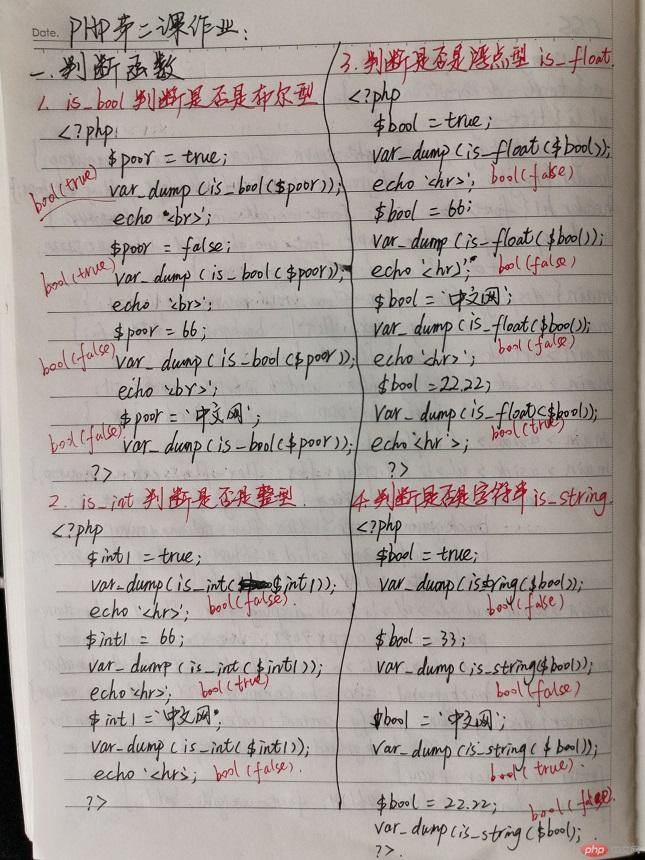 Date. PHP第二课作业:
一.判断函数
1. is_bool 判断是否是布尔型
<?php
$poor = true;
bool(true) var_dump (is_bool($poor));
echo '<br>';
$poor = false;
bool(true) var_dump (is_bool($poor));
echo '<br>';
$poor = 66;
bool(false) var_dump (is_bool($poor));
echo '<br>';
$poor = '中文网';
bool(false) var_dump (is_bool($poor));
?>
2. is_int 判断是否是整型.
<?php
$int1 = true;
var_dump (is_int($int1));
echo '<hr>'; bool(false).
$int1 = 66;
var_dump (is_int($int1));
echo '<hr>'; bool(true)
$int1 = '中文网';
var_dump (is_int($int1));
echo '<hr>'; bool(false).
?>
3. 判断是否是浮点型 is_float.
<?php
$bool = true;
var_dump (is_float($bool));
echo '<hr>'; bool(false)
$bool = 66;
var_dump (is_float($bool));
echo '<hr>'; bool(false)
$bool = '中文网';
var_dump (is_float($bool));
bool(false)
echo '<hr>';
$bool = 22.22;
var_dump (is_float($bool));
bool(true)
echo '<hr>';
?>
4. 判断是否是字符串 is_string.
<?php
$bool = true;
var_dump (isstring($bool));
bool(false)
$bool = 33;
var_dump (is_string($bool));
bool(false)
$bool = '中文网';
var_dump (is_string($bool));
bool(true).
$bool = 22.22; bool(false).
var_dump (is_string($bool);
?>.
php